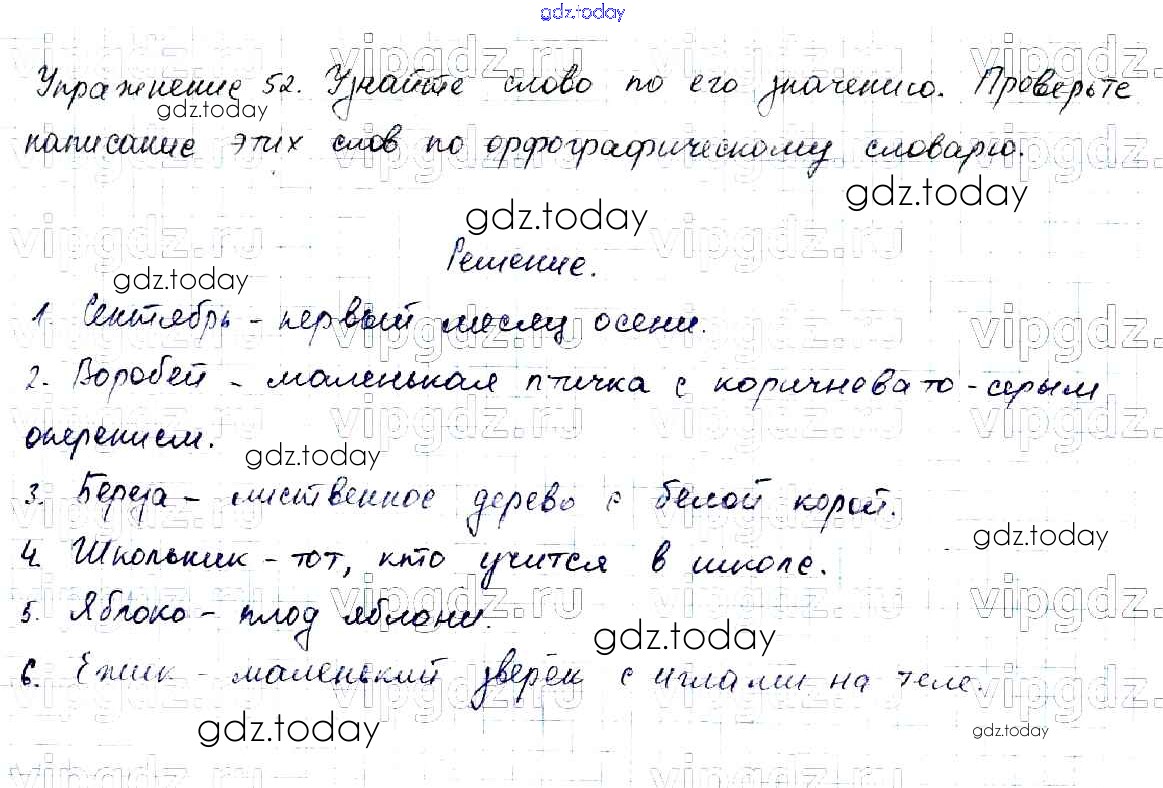 gdz.today
Упражнение 52. Узнайте слово по его значению. Проверьте
написание этих слов по орфографическому словарю.
Решение.
1. Сентябрь - первый месяц осени.
2. Воробей - маленькая птичка с коричневато-серым
оперением.
3. Берёза - лиственное дерево с белой корой.
4. Школьник - тот, кто учится в школе.
5. Яблоко - плод яблони.
6. Ёжик - маленький зверёк с иглами на теле.
vipgdz.ru
gdz.today